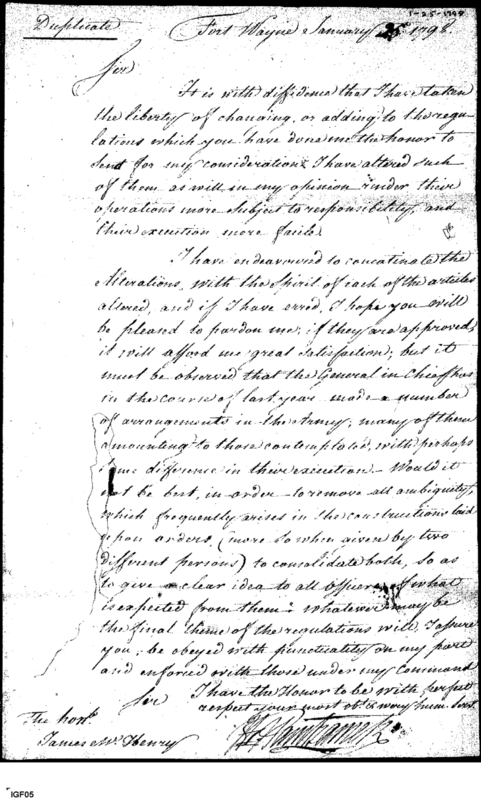 1-25-1798
Duplicate Fort Wayne January 25th 1798.
Sir
It is with diffidence that I have taken
the liberty of changing, or adding to the regu-
lations which you have done me the honor to
send for my consideration; I have altered such
of them as will in my opinion render their
operations more subject to responsibility, and
their execution more facile.
I have endeavoured to concatinate the
Alterations, with the Spirit of each of the articles
altered, and if I have erred, I hope you will
be pleased to pardon me, if they are approved,
it will afford me great satisfaction; but it
must be observed that the General in Chief has
in the course of last year made a number
of arrangements in the Army, many of them
amounting to those contemplated, with perhaps
some difference in their execution - Would it
not be best, in order to remove all ambiguity,
which frequently arises in the constructions laid
upon orders, (more so when given by two
different persons) to consolidate both, so as
to give a clear idea to all Officers of what
is expected from them: whatever may be
the final theme of the regulations will, I assure
you, be obeyed with punctuality on my part
and enforced with those under my Command
I have the Honor to be with perfect
Sir respect your most obt. & very hum. Servt.
The honl.
James McHenry
J F Hamtramck
IGF05